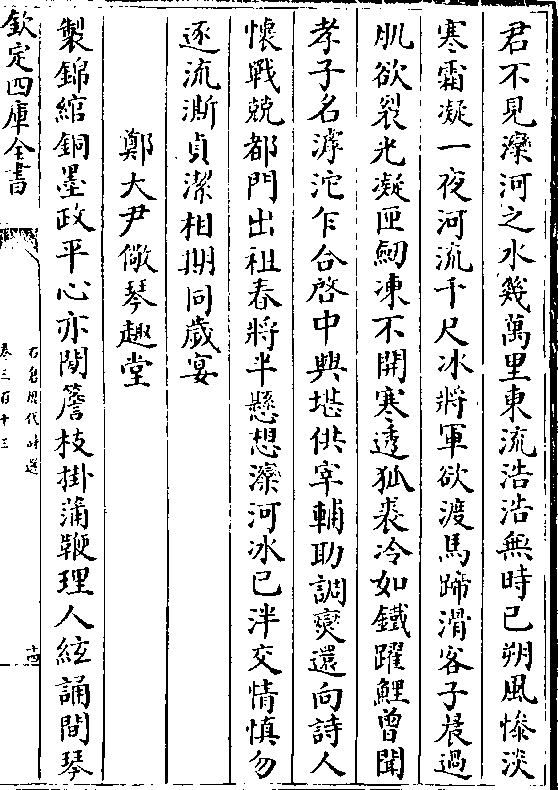 君不見灤河之水幾萬里東流浩浩無時已朔風慘淡
寒霜凝一夜河流千尺冰將軍欲渡馬蹄滑客子晨過
肌欲裂光凝匣劒凍不開寒透狐裘冷如鐵躍鯉曽聞
孝子名滹沱乍合啓中興堪供宰輔助調燮還向詩人
懷戰兢都門出祖春將半懸想灤河冰已泮交情慎勿
逐流澌貞潔相期同歲宴
鄭大尹儆琴趣堂
製錦綰銅墨政平心亦閒簷枝掛蒲鞭理人絃誦間琴
欽定四庫全書
石倉歴代詩選
卷三百十三
十四